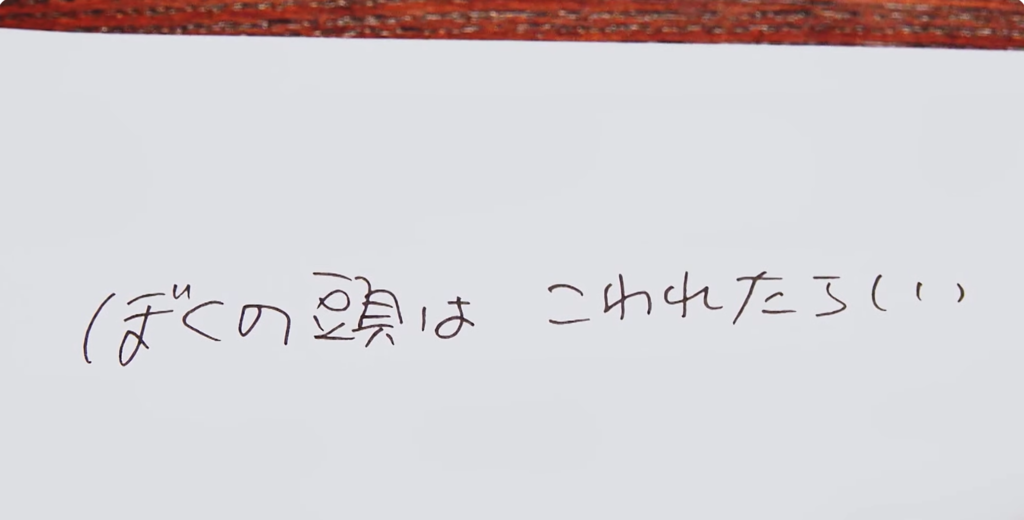 ぼくの頭は こわれたらしい